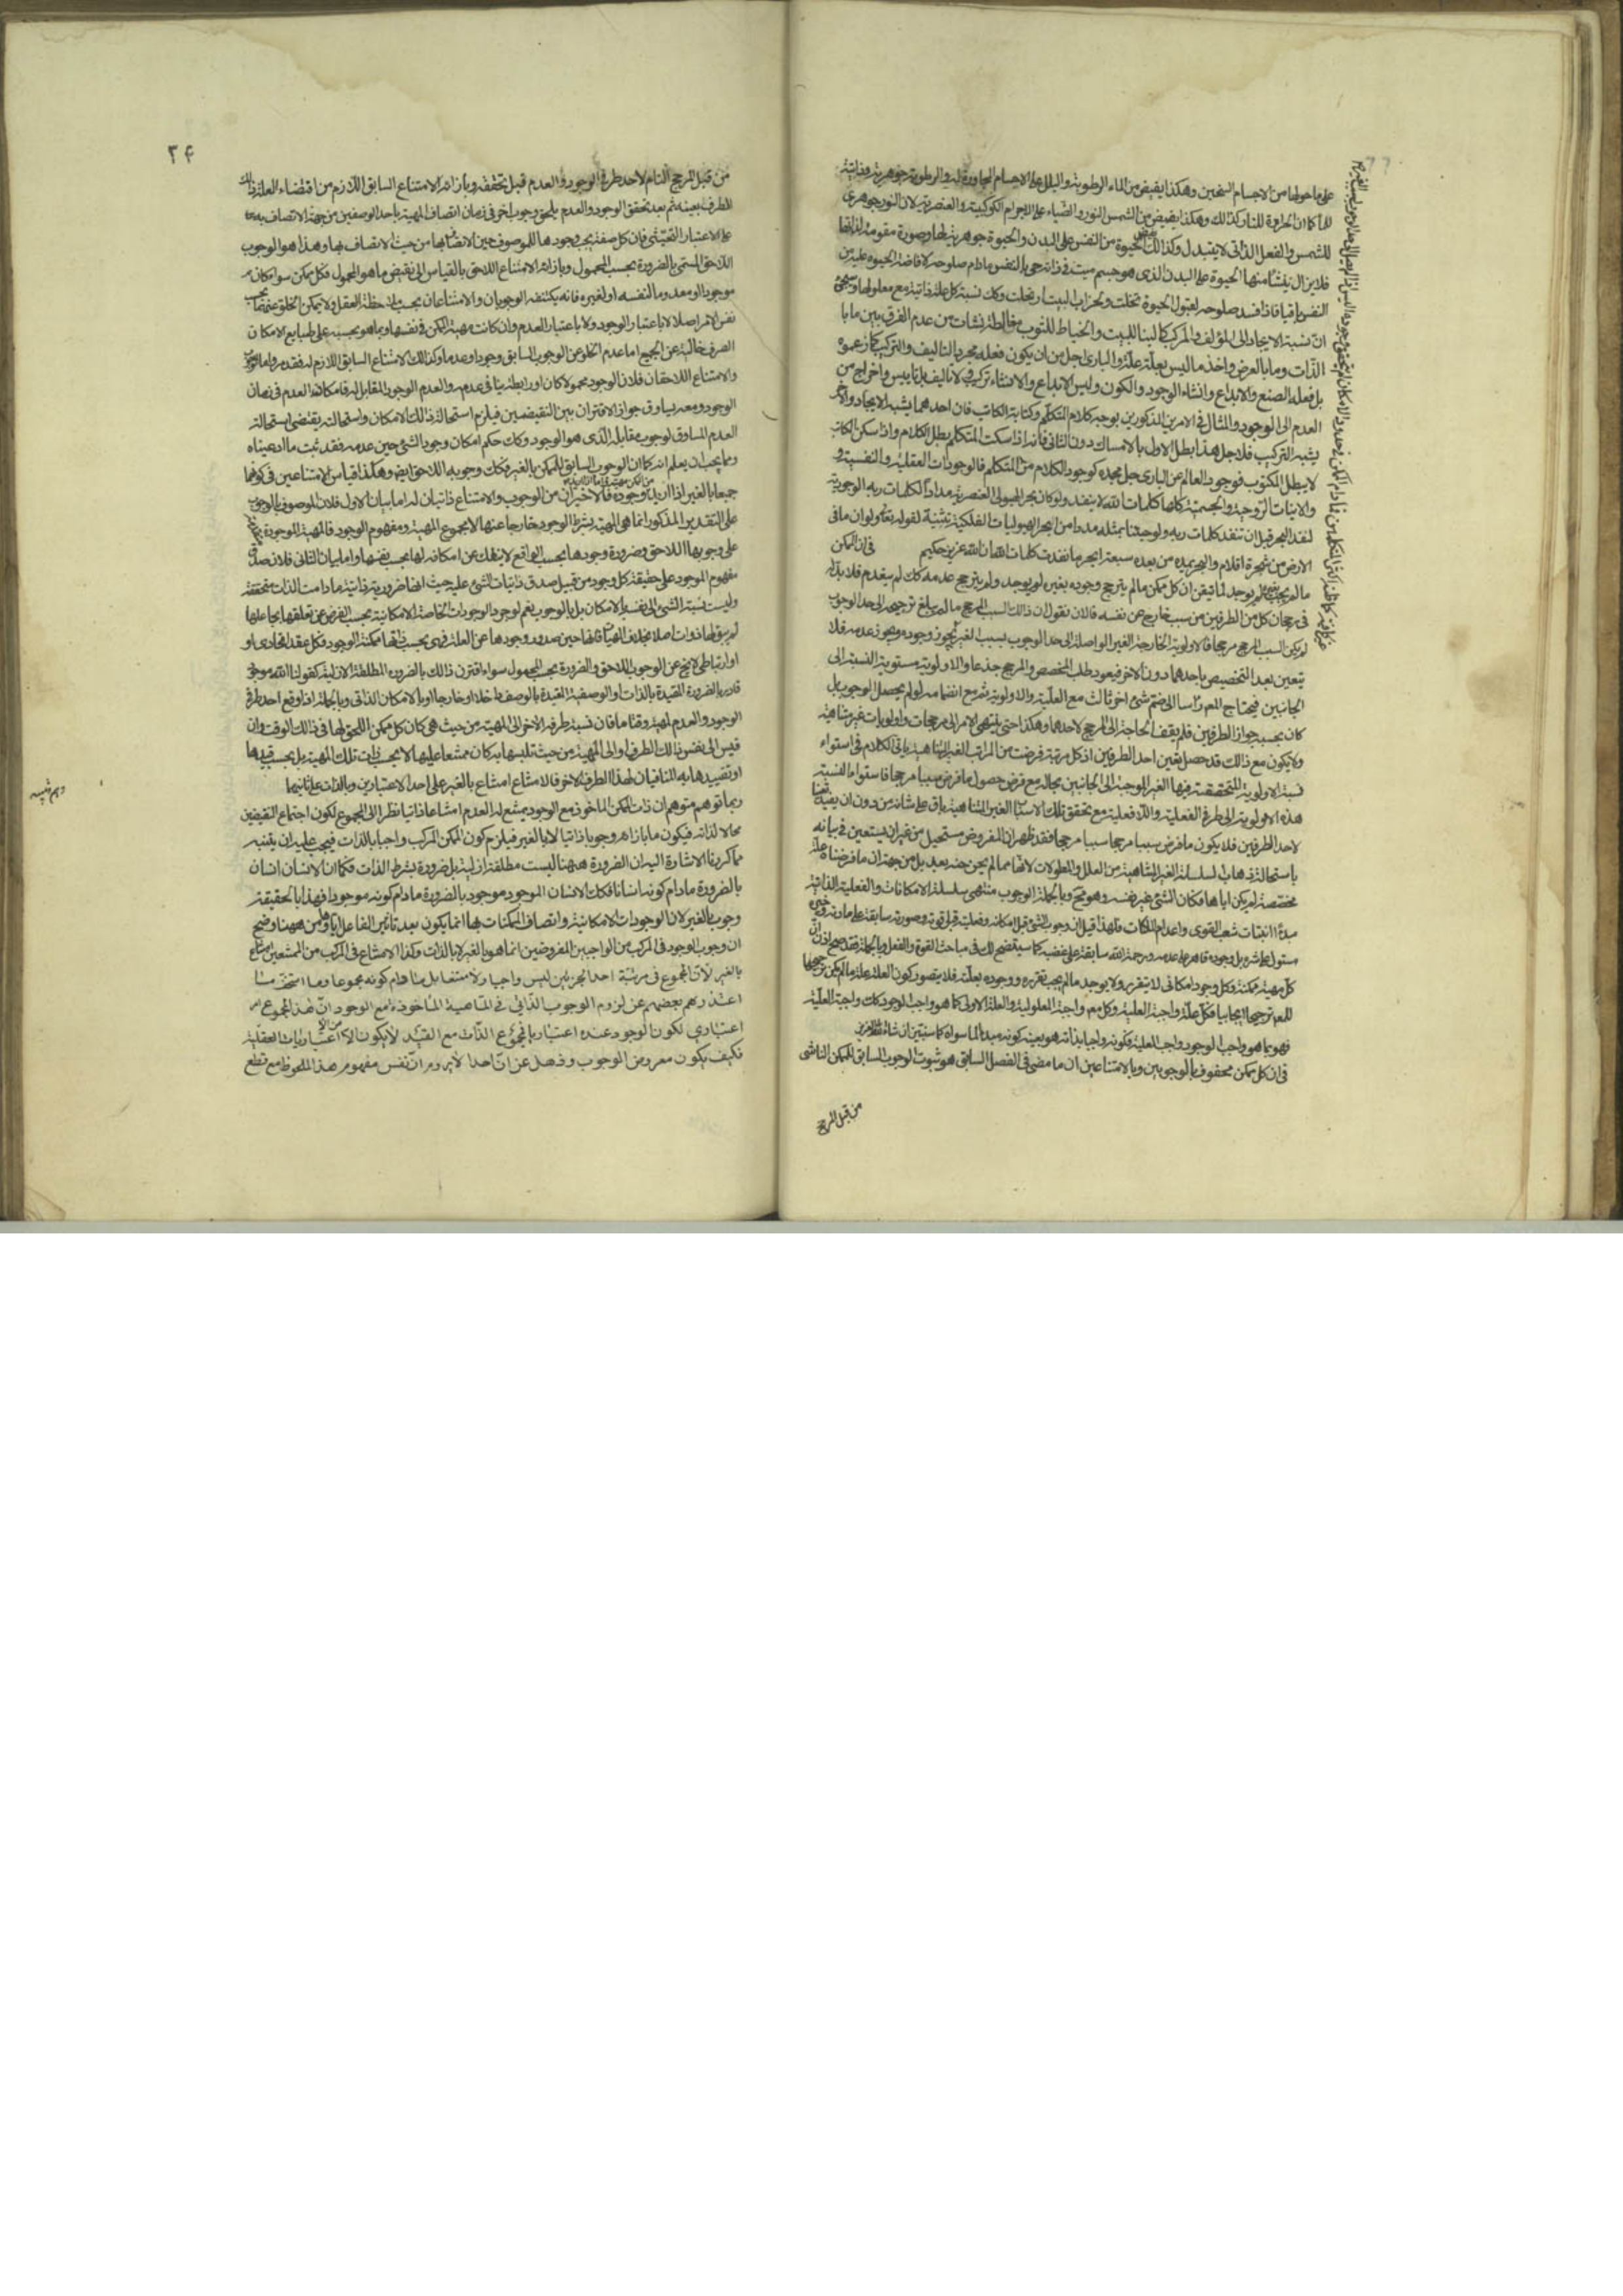 على ما حولها من الاجسام السخين وهكذا يفيض من الماء الرطوبة والبلل على الاجسام المجاورة له والرطوبة جوهرية وذاتية
للماء كما ان الحرارة للنار كذلك وهكذا يفيض من الشمس النور والضياء على الاجرام الكوكبية والعنصرية لان النور جوهرى
للشمس والفعل الذاتى لا يتبدل وكذلك الحيوة من النفس على البدن والحيوة جوهرية لها وصورة مقومة لذاتها
فلا يزال ينشأ منها الحيوة على البدن الذى هو جسم ميت فى ذاته حى بالنفس مادام صلوحه لافاضة الحيوة عليه من
النفس باقيا فاذا فسد صلوحه لقبول الحيوة تخلت وتخراب البيت ارتحلت وكك نسبة كل علة ذاتية مع معلولها
ان نسبة الايجاد الى المؤلف والمركب كالبناء للبيت والخياط للثوب مغالطة نشأت من عدم الفرق بين ما با
الذات وما بالعرض واخذ ما ليس بعلة علة والبارى اجل من ان يكون فعله مجرد التاليف والتركيب كما زعموه
بل فعله الصنع والابداع وانشاء الوجود والكون وليس الابداع والانشاء تركيب ولا تاليف بل تاييس واخراج من
العدم الى الوجود والمثال فى الامرين المذكورين يوجد كلام المتكلم وكتابة الكاتب فان احدهما يشبه الايجاد والاخر
يشبه التركيب فلاجل هذا بطل الاول بالامساك دون الثانى فانه اذا سكت المتكلم بطل الكلام واذا سكن الكاتب
لا يبطل المكتوب فوجود العالم عن البارى جل مجده كوجود الكلام من المتكلم فالوجودات العقلية والنفسية و
والانيات الروحية والجسمية كلها كلمات الله لا ينفد ولو كان بحر الهيولى العنصرية مدادا لكلمات ربه الوجودية
لنفد البحر قبل ان تنفد كلمات ربه ولو جئنا بمثله مددا من ابحر الهيوليات الفلكية لقوله تع ولو ان ما فى
الارض من شجرة اقلام والبحر يمده من بعده سبعة ابحر ما نفدت كلمات الله ان الله عزيز حكيم فى ان الممكن
ما لم يجب بغيره لم يوجد لما تيقن ان كل ممكن ما لم يترجح وجوده بغيره لم يوجد ولم يترجح عدمه كك لم ينعدم فلا بد له
فى رجحان كل من الطرفين من سبب خارج عن نفسه فالان نقول ان ذلك السبب المرجح ما لم يبلغ ترجيحه الى حد الوجوب
لم يكن السبب المرجح مرجحا فالاولوية الخارجية الغير الواصلة الى حد الوجوب بسبب الغير يجوز وجوده ويجوز عدمه فلا
يتعين بعد التخصيص باحدهما دون الاخر فيعود طلب المخصص والمرجح جذعا والاولوية مستوية النسبة الى
الجانبين فيحتاج المعلول راسا الى ضم شئ اخر ثالث مع العلية والاولوية ثم مع انضمامه لو لم يحصل الوجوب بل
كان بحسبه جواز الطرفين فلم يقف الحاجة الى المرجح لاحدهما وهكذا حتى ينتهى الامر الى مرجحات واولويات غير متناهية
ولا يكون مع ذلك قد حصل تعين احد الطرفين اذ كل مرتبة فرضت من المراتب الغير المتناهية ياتى الكلام فى استواء
نسبة الاولوية المتحققة فيها الغير الموجبة الى الجانبين بحاله مع فرض حصول ما فرض سببا مرجحا فاستواء النسبة
هذه الاولوية الى طرفى الفعلية واللافعلية مع تحقق تلك الاسباب الغير المتناهية باق على شانه من دون ان يفيد تعينا
لاحد الطرفين فلا يكون ما فرض سببا مرجحا سببا مرجحا فقد ظهر ان المفروض مستحيل من غير ان يستعين فى بيانه
باستحالة ذهاب السلسلة الغير المتناهية من العلل والمعلولات لانها مما لم يحن حينه بعد بل من جهة ان ما فرضناه علة
مخصصة لم يكن اياها فكان الشئ غير نفسه وهو محال وبالجملة الوجوب منتهى سلسلة الامكانات والفعلية الذاتية
مبدء انبتات شعب القوى واعدام الملكات فلهذا قيل ان وجوب الشئ قبل امكانه وفعليته قبل قوته وصورته سابقة على مادته
مستول على شره بل وجوده قاهر على عدمه ورحمة الله سابقة على غضبه كما سيتضح لك فى مباحث القوة والفعل وبالجملة فقد صح اذن ان
كل مهية ممكنة وكل وجود امكانى لا يتقرر ولا يوجد ما لم يجب تقرره ووجوده بعلته فلا يتصور كون العلة علة ما لم يكن ترجيحها
للمعلول ترجيحا ايجابيا فكل علة واجبة العلية وكل معلول واجبة المعلولية والعلة الاولى كما هو واجب الوجود كك واجبة العلية
فهو بما هو واجب الوجود واجب العلية فكونه واجبا بذاته هو بعينه كونه مبدء لما سواه كما سنبين ان شاء الله العزيز
فى ان كل ممكن محفوف بالوجوبين وبالامتناعين ان ما مضى فى الفصل السابق هو ثبوت الوجوب السابق للممكن الناشى
من قبل المرجح
٢۴
من قبل المرجح التام لاحد طرفى الوجود والعدم قبل تحققه وبازائه الامتناع السابق اللازم من اقتضاء العلة ذلك
الطرف بعينه ثم بعد تحقق الوجود والعدم يلحق وجوب اخر فى زمان اتصاف المهية باحد الوصفين من جهة الاتصاف به
على الاعتبار التحيثى فان كل صفة يجب وجودها للموصوف حين الاتصاف بها من حيث الاتصاف بها وهذا هو الوجوب
اللاحق المسمى بالضرورة بحسب المحمول وبازائه الامتناع اللاحق بالقياس الى نقيض ما هو المحمول فكل ممكن سواء كان
موجودا او معدوما لنفسه او لغيره فانه يكتنفه الوجوبان والامتناعان بحسب ملاحظة العقل ولا يمكن الخلو عنهما بحسب
نفس الامر اصلا لا باعتبار الوجود ولا باعتبار العدم وان كانت مهية الممكن فى نفسها وبما هو بحسبه على طباع الامكان
الصرف خالية عن الجميع اما عدم الخلو عن الوجوب السابق وجودا وعدما وكذلك الامتناع السابق اللازم له فقد مر واما الوجوب
والامتناع اللاحقان فلان الوجود محمولا كان او رابطة ينافى عدمه والعدم الوجود المقابل له فامكانه العدم فى زمان
الوجود ومعه يساوق جواز الاقتران بين النقيضين فيلزم استحالة ذلك الامكان واستحالته يقتضى استحالة
العدم المساوق لوجوب مقابله الذى هو الوجود وكك حكم امكان وجود الشئ حين عدمه فقد ثبت ما ادعيناه
ومما يجب ان يعلم انه كما ان الوجوب السابق للممكن بالغير فكك وجوبه اللاحق ايضا وهكذا قياس الامتناعين فى كونهما
جميعا بالغير اذا اريد وجوده فالاخيران من الوجوب والامتناع ذاتيان له اما بيان الاول فلان الموصوف بالوجوب
على التقدير المذكور انما هى المهية بشرط الوجود خارجا عنها لا مجموع المهية ومفهوم الوجود فالمهية الموجودة
على وجوبها اللاحق وضرورة وجودها بحسب الواقع لا ينفك عن امكانه لها بحسب نفسها واما بيان الثانى فلان صدق
مفهوم الموجود على حقيقة كل وجود من قبيل صدق ذاتيات الشئ عليه حيث انها ضرورية ذاتية مادامت الذات متحققة
وليست نسبة الشئ الى نفسه بالامكان بل بالوجوب نعم لوجود الوجودات الخاصة الامكانية بحسب الفرض عن تعلقها بجاعلها
لم يبق لها ذوات اصلا بخلاف المهيات فانها حين صدور وجودها عن العلة فهى بحسب ذاتها ممكنة الوجود فكل عقد اتحادى
او ارتباطى لا يخ عن الوجوب اللاحق والضرورة بحسب المحمول سواء اقترن ذلك بالضرورة المطلقة الازلية كقولنا الله موجود
قادر بالضرورة المقيدة بالذات او الوصفية المقيدة بالوصف داخلا او خارجا او بالامكان الذاتى وبالجملة اذا وقع احد طرفى
الوجود والعدم لمهية وقتا ما فان نسبة طرفه الاخر الى المهية من حيث هى كان كل ممكن اللحوق لها فى ذلك الوقت وان
قيس الى نفس ذلك الطرف او الى المهية من حيث تلبسها به كان ممتنعا عليها لا بحسب ذات تلك المهية بل بحسب تقييدها
او تقييدها به المنافيان لهذا الطرف الاخر فالامتناع امتناع بالغير على احد الاعتبارين وبالذات على ثانيهما
ربما توهم متوهم ان ذات الممكن الماخوذ مع الوجود يمتنع له العدم امتناعا ذاتيا نظرا الى المجموع لكون اجتماع النقيضين
محالا لذاته فيكون ما بازائه وجوبا ذاتيا لا بالغير فيلزم كون الممكن المركب واجبا بالذات فيجب عليه ان يتنبه
مما كررنا الاشارة اليه ان الضرورة ههنا ليست مطلقة ازلية بل ضرورة بشرط الذات فكما ان الانسان انسان
بالضرورة مادام كونه انسانا فكك الانسان الموجود موجود بالضرورة مادام كونه موجودا فهذا بالحقيقة
وجوب بالغير لان الوجودات الامكانية واتصاف الممكنات بها انما يكون بعد تاثير الفاعل اياها ومن ههنا وضح
ان وجوب الوجود فى المركب من الواجبين المفروضين انما هو بالغير لا بالذات وكذا الامتناع فى المركب من الممتنعين امتناع
بالغير لان المجموع فى مرتبة احد الجزئين ليس واجبا ولا ممتنعا بل مادام كونه مجموعا وما استخف ما
اعتذر هم بعضهم عن لزوم الوجوب الذاتى فى الماهية الماخوذة مع الوجود ان هذا المجموع امر
اعتبارى لكون الوجود عنده اعتباريا فمجموع الذات مع القيد لا يكون الا من الاعتباريات العقلية
فكيف يكون معروض الوجوب وذهل عن ان احدا لا يروم ان نفس مفهوم هذا الملحوظ مع قطع
وهم وتنبيه